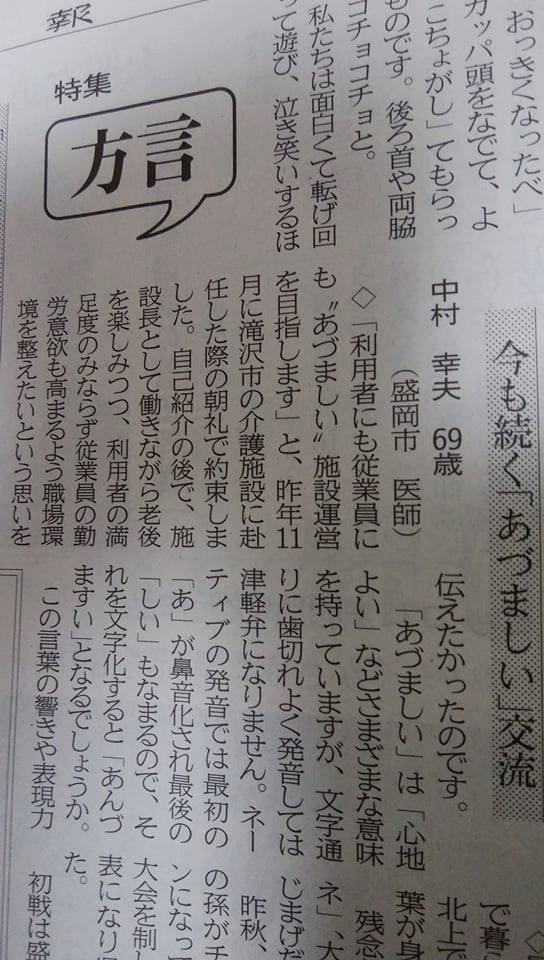 報
おっきくなったべ」
カッパ頭をなでて、よ
こちょがし」てもらっ
ものです。後ろ首や両脇
コチョコチョと。
私たちは面白くて転げ回
って遊び、泣き笑いするほ
特集
方言
今も続く「あづましい」交流
中村 幸夫 69歳
(盛岡市 医師)
◇「利用者にも従業員に
も〝あづましい〟施設運営
を目指します」と、昨年11
月に滝沢市の介護施設に赴
任した際の朝礼で約束しま
した。自己紹介の後で、施
設長として働きながら老後
を楽しみつつ、利用者の満
足度のみならず従業員の勤
労意欲も高まるよう職場環
境を整えたいという思いを
伝えたかったのです。
「あづましい」は「心地
よい」などさまざまな意味
を持っていますが、文字通
りに歯切れよく発音しては
津軽弁になりません。ネー
ティブの発音では最初の
「あ」が鼻音化され最後の
「しい」もなまるので、そ
れを文字化すると「あんづ
ますい」となるでしょうか。
この言葉の響きや表現力
で暮ら
北上で
葉が身
残念
ネ」、大
じまげだ
昨秋、
の孫がチ
ンになって
大会を制し
表になり
た。
初戦は盛